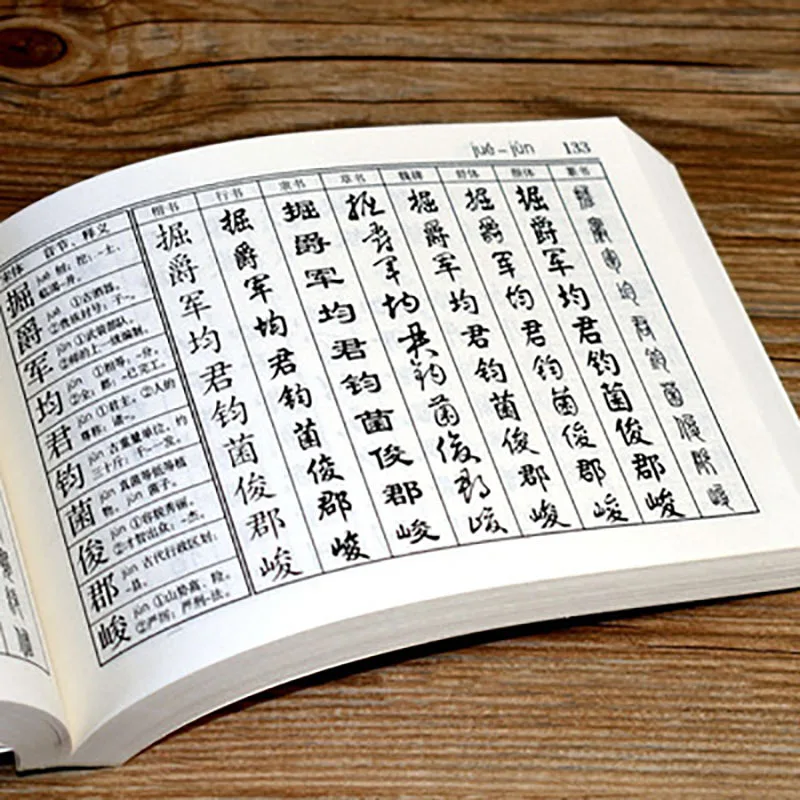 jué – jùn 133
宋体 音节、释义 楷书 行书 隶书 草书 魏碑 舒体 颜体 篆书
掘 jué 刨,挖:~土,临渴~井。 掘 掘 掘 掘 掘 掘 掘 掘
爵 jué ①古酒器。②贵族封号:子~。 爵 爵 爵 爵 爵 爵 爵 爵
军 jūn ①武装部队。②师的上一级编制。 军 军 军 军 军 军 军 军
均 jūn ①相等:~分。②全,都:~已完工。 均 均 均 均 均 均 均 均
君 jūn ①君主。②人的尊称:诸~。 君 君 君 君 君 君 君 君
钧 jūn 古重量单位,约三十斤:千~一发。 钧 钧 钧 钧 钧 钧 钧 钧
菌 jūn 真菌等低等植物。jùn 菌子。 菌 菌 菌 菌 菌 菌 菌 菌
俊 jùn ①容貌秀丽。②才智出众:~杰。 俊 俊 俊 俊 俊 俊 俊 俊
郡 jùn 古代行政区划:~县。 郡 郡 郡 郡 郡 郡 郡 郡
峻 jùn ①山势高、险。②严厉:严刑~法。 峻 峻 峻 峻 峻 峻 峻 峻